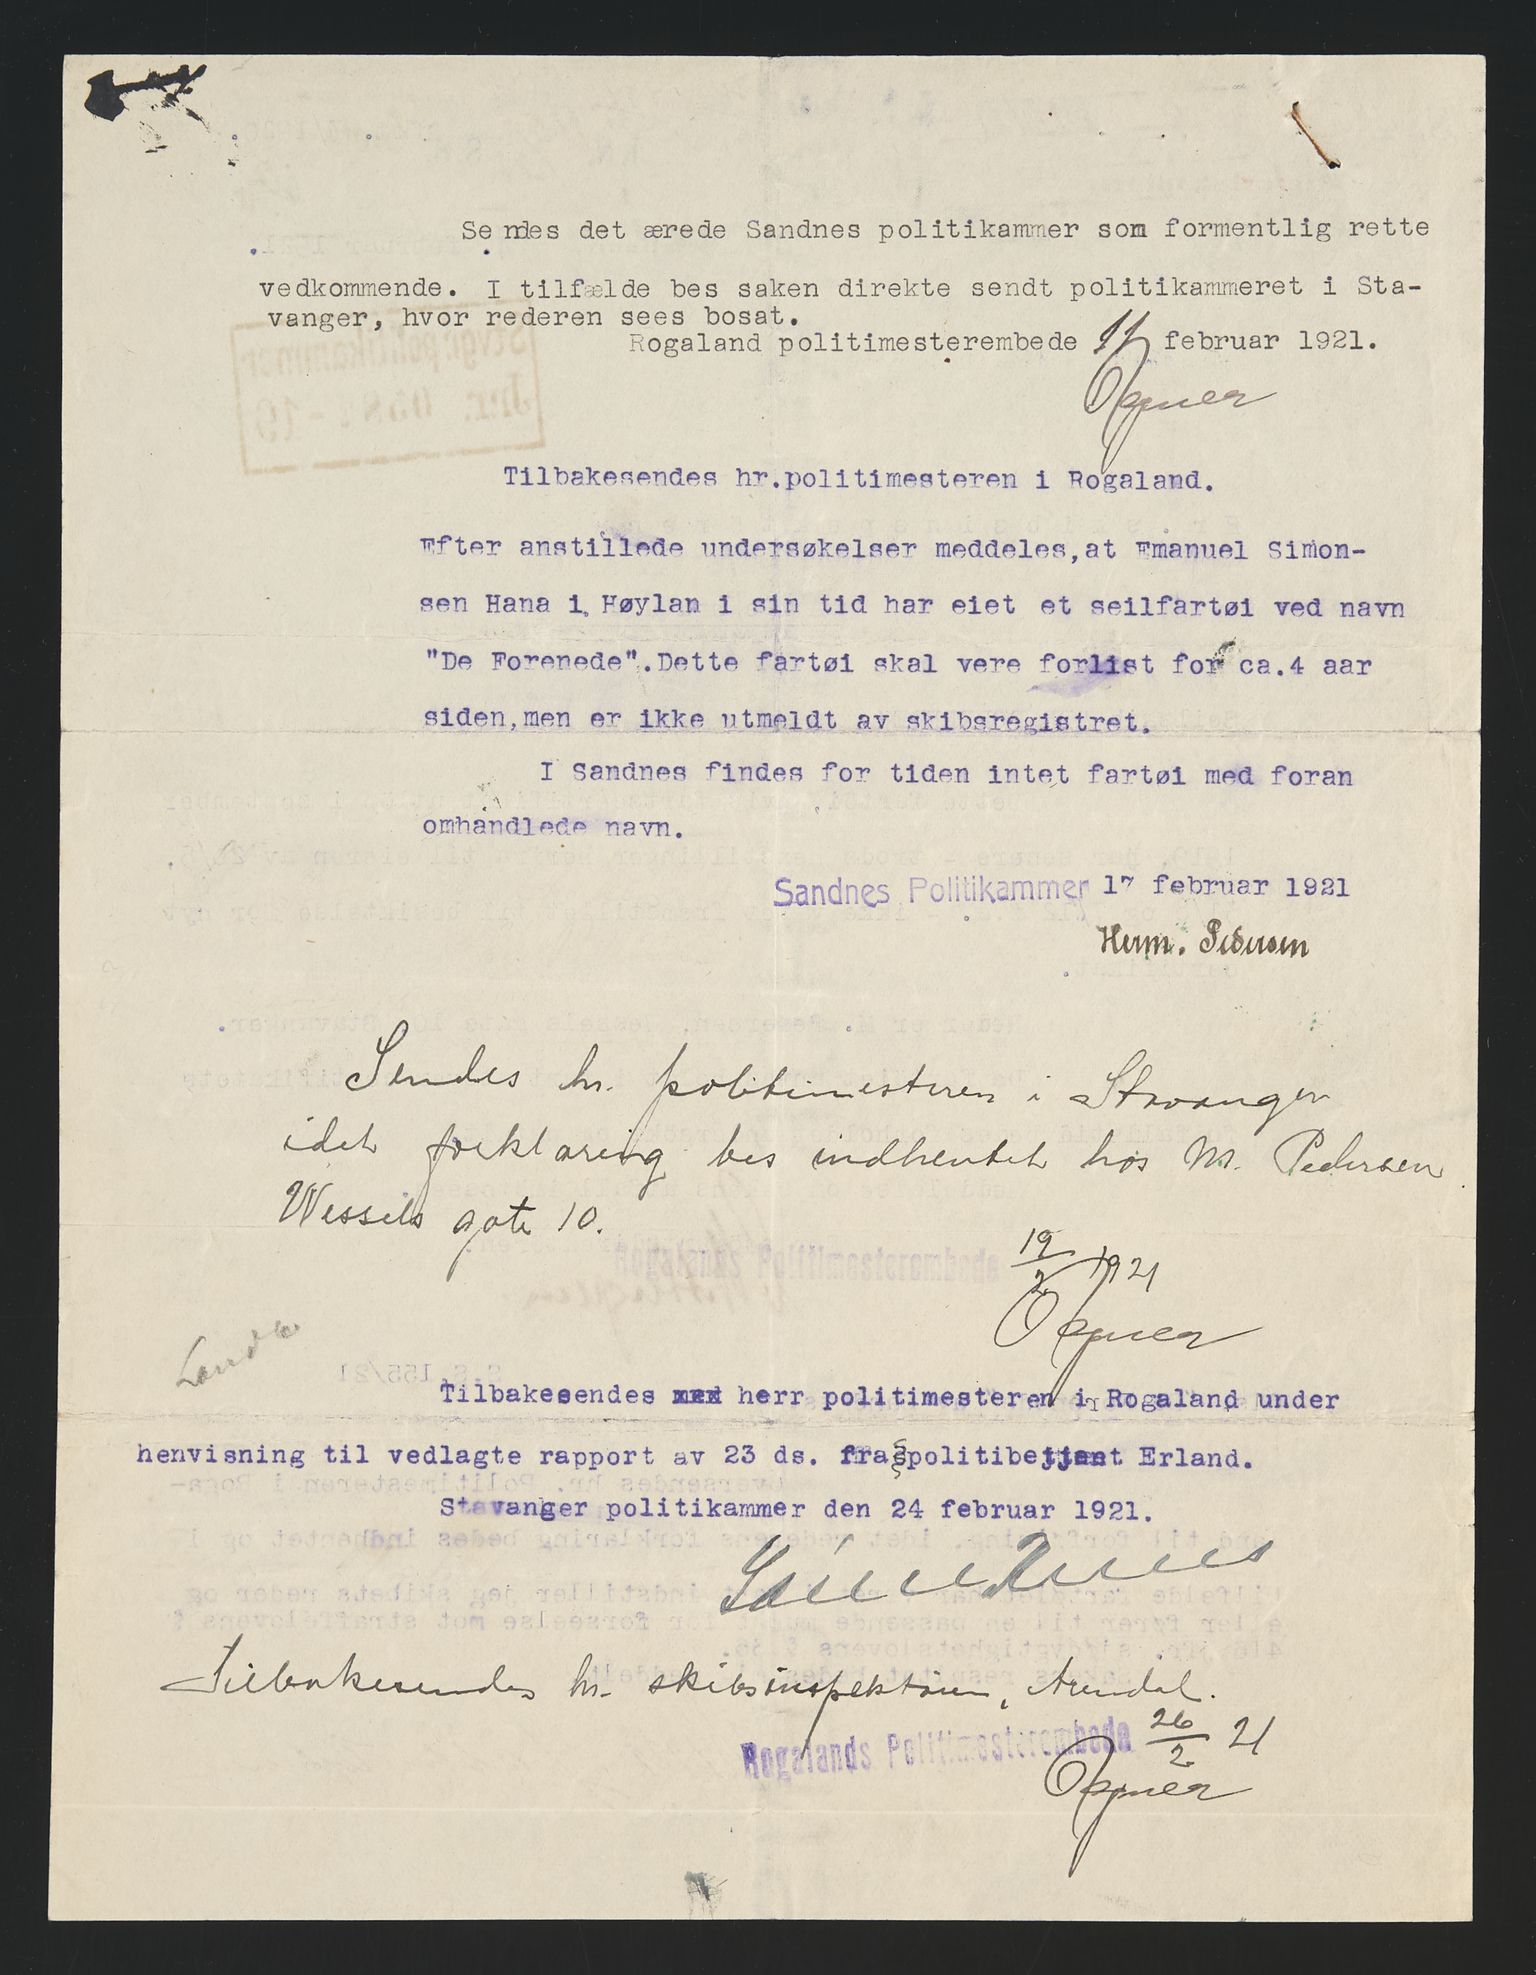 Sendes det ærede Sandnes politikammer som formentlig rette
vedkommende. I tilfælde bes saken direkte sendt politikammeret i Sta-
vanger, hvor rederen sees bosat.
Rogaland politimesterembede 11 februar 1921.
Tilbakesendes hr.politimesteren i Rogaland.
Efter anstillede undersøkelser meddeles,at Emanuel Simon-
sen Hana i Høylan i sin tid har eiet et seilfartøi ved navn
"De Forenede".Dette fartøi skal vere forlist for ca.4 aar
siden,men er ikke utmeldt av skibsregistret.
I Sandnes findes for tiden intet fartøi med foran
omhandlede navn.
Sandnes Politikammer 17 februar 1921
Herm. Pedersen
Sendes hr. politimesteren i Stavanger
idet forklaring bes indhentet hos M. Pedersen
Wessels gate 10.
Rogalands Politimesterembede 19/2 1921
Tilbakesendes herr politimesteren i Rogaland under
henvisning til vedlagte rapport av 23 ds. fra politibetjent Erland.
Stavanger politikammer den 24 februar 1921.
Tilbakesendes hr. skibsinspektøren, Arendal.
Rogalands Politimesterembede 26/2 21